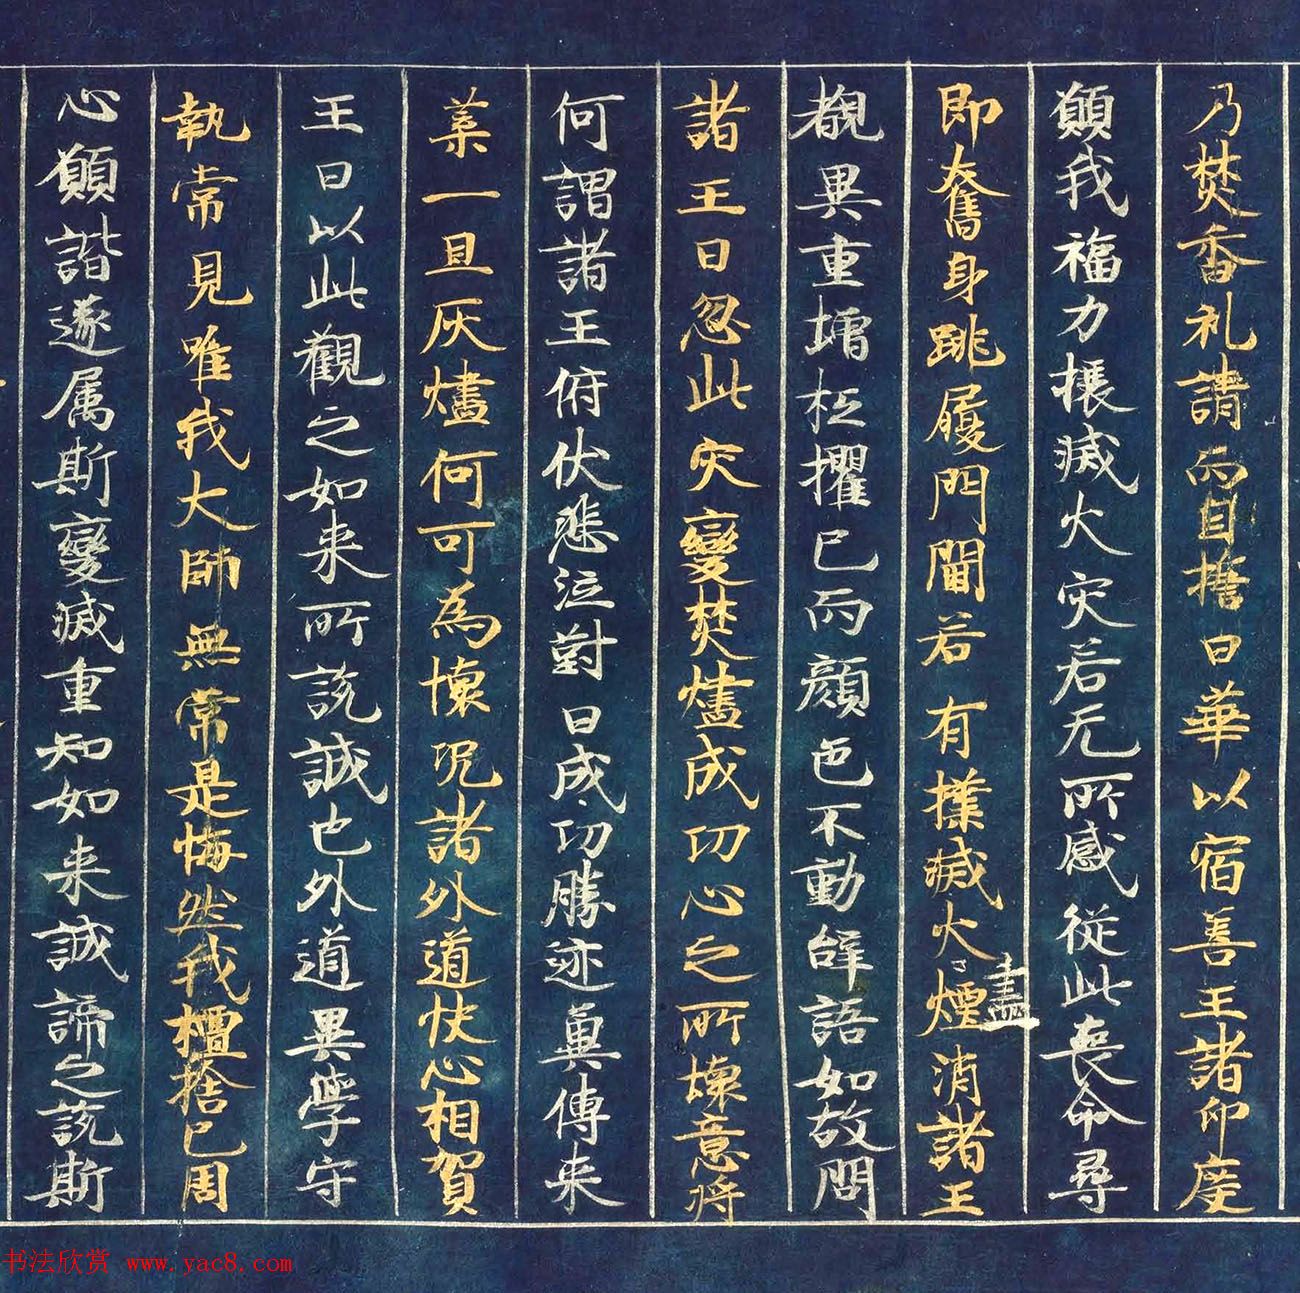 乃焚香礼請而自擔曰華以宿善王諸印度
願我福力攘滅火灾若无所感從此喪命尋
即奮身跳履門閫若有撲滅火煙消諸王
盡
覩異重增枉擢已而顔色不動辝語如故問
諸王曰忽此灾變焚燼成功心之所悚意將
何謂諸王俯伏悲泣對曰成功勝迹兾傳来
葉一旦灰燼何可為懷况諸外道快心相賀
王曰以此觀之如来所説誠也外道異學守
執常見唯我大師無常是悔然我檀捨已周
心願諧遂属斯變滅重知如来誠諦之説斯
书法欣赏 www.yac8.com